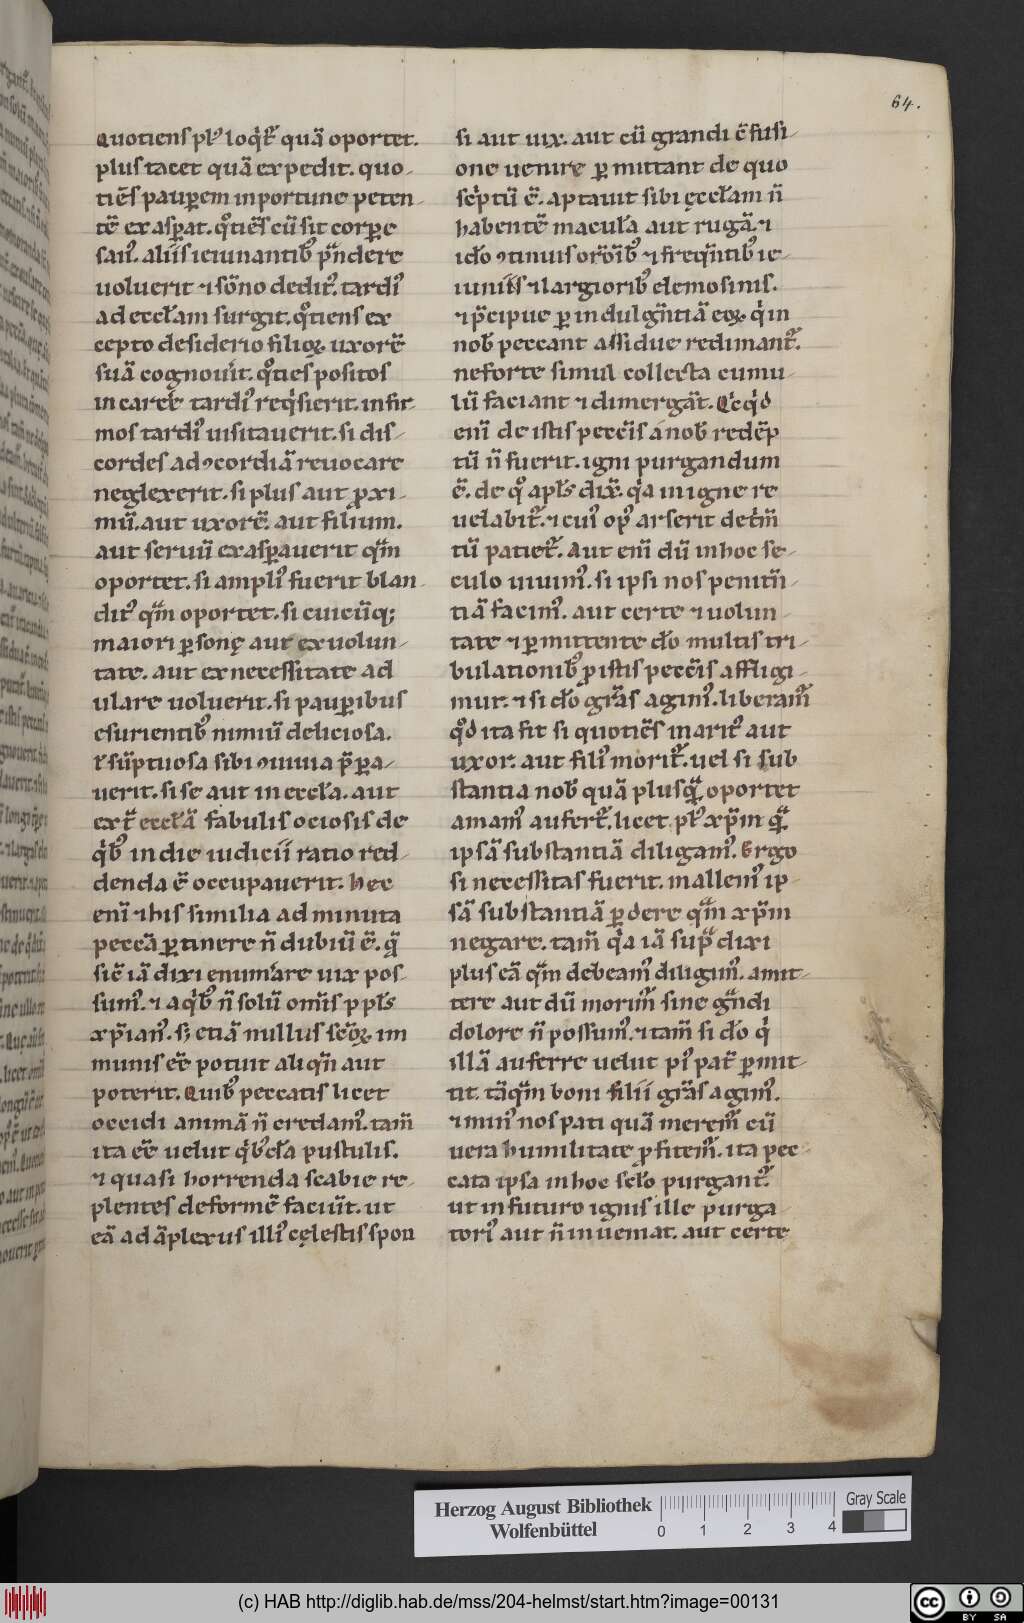 64.
Quotiens plꝰ loqͥt᷑ quā oportet.
plus tacet quā expedit. quo-
tiēs pauꝑem inportune peten-
tē exasꝑat. qͦtiēs cū sit corꝑe
san᷒. aliis ieiunantibꝰ p̄ndere
uoluerit ⁊ sōno deditꝰ. tardiꝰ
ad eccłam surgit. qͦtiens ex
cepto desiderio filioꝝ uxorē
suā cognouit. qͦties positos
in carcere tardiꝰ reqͥsierit. infir-
mos tardiꝰ uisitauerit. si dis-
cordes ad ꝯcordiā reuocare
neglexerit. si plus aut proxi-
mū. aut uxorē. aut filium.
aut seruū exasꝑauerit qm̄
oportet. si ampliꝰ fuerit blan-
ditꝰ qm̄ oportet. si cuicūq;
maiori ꝑsonę aut ex uolun-
tate. aut ex necessitate ad
ulare uoluerit. si pauꝑibus
esurientibꝰ nimiū deliciosa.
ł sūptuosa sibi ꝯuiuia p̄ꝑa-
uerit. si se aut in eccła. aut
ext̄ eccłā fabulis ociosis de
qͥbꝰ in die iudicii ratio red-
denda ē occupauerit. Hec
enī ⁊ his similia ad minuta
peccā ꝑtinere n̄ dubiū ē. q̄
sic̄ iā dixi enum̄are uix pos-
sumꝰ. ⁊ a qͥbꝰ n̄ solū om̄is ppłs
xp̄ianꝰ. sꝫ etiā nullus sc̄oꝝ im
munis eē potuit aliqn̄ aut
poterit. Quibꝰ peccatis licet
occidi animā n̄ credamꝰ. tam̄
ita eē uelut qͥbꝰdā pustulis.
⁊ quasi horrenda scabie re-
plentes deformē faciūt. ut
eā ad āplexus illiꝰ cęlestis spon
si aut uix. aut cū grandi ꝯ̄fusi-
one uenire ꝑmittant de quo
sc̄ptū ē. aptauit sibi ęccłam n̄
habentē macuła aut rugā. ⁊
ido ꝯtinuis or̄oībꝰ ⁊ freqn̄tibꝰ ie-
iuniis ⁊ largioribꝰ elemosinis.
⁊ p̄cipue ꝑ indulgn̄tiā eoꝝ qͥ in
nob̄ peccant assidue redimant᷑.
ne forte simul collecta cumu-
lū faciant ⁊ dimergāt. Qͥcqͥd
enī de istis pecc̄is a nob̄ redēp
tū n̄ fuerit. igni purgandum
ē. de qͦ apłs dix̄. qͥa in igne re
uelabit᷑. ⁊ cuiꝰ opꝰ arserit detͥm̄
tū patiet᷑. Aut enī dū in hoc se-
culo uiuimꝰ. si ipsi nos penitn̄-
tiā facimꝰ. aut certe ⁊ uolun-
tate ⁊ ꝑmittente do multis tri-
bulationibꝰ ꝓ istis pecc̄is affligi-
mur. ⁊ si do gr̄as agimꝰ. liberam᷑
qͦd ita fit si quotiēs maritꝰ aut
uxor. aut filiꝰ morit᷑. uel si sub
stantia nob̄ quā plusq̄ oportet
amamꝰ aufert᷑. licet plꝰ xp̄m q̄
ipsā substantiā diligamꝰ. Ergo
si necessitas fuerit. mallemꝰ ip-
sā substantiā ꝑdere qm̄ xp̄m
negare. tam̄ qͥa iā sup̄ dixi
plus eā qm̄ debeamꝰ diligimꝰ. amit-
tere aut dū morim᷑ sine gn̄di
dolore n̄ possumꝰ. ⁊ tam̄ si do qͥ
illā auferre uelut piꝰ pat̄ ꝑmit-
tit. tāqm̄ boni filii gr̄as agimꝰ.
⁊ min᷒ nos pati quā merem᷑ cū
uera humilitate ꝓfitem᷑. ita pec-
cata ipsa in hoc scło purgant᷑.
ut in futuro ignis ille purga
toriꝰ aut n̄ inueniat. aut certe
Herzog August Bibliothek
Wolfenbüttel
0 1 2 3 4
Gray Scale
(c) HAB http://diglib.hab.de/mss/204-helmst/start.htm?image=00131
cc BY SA